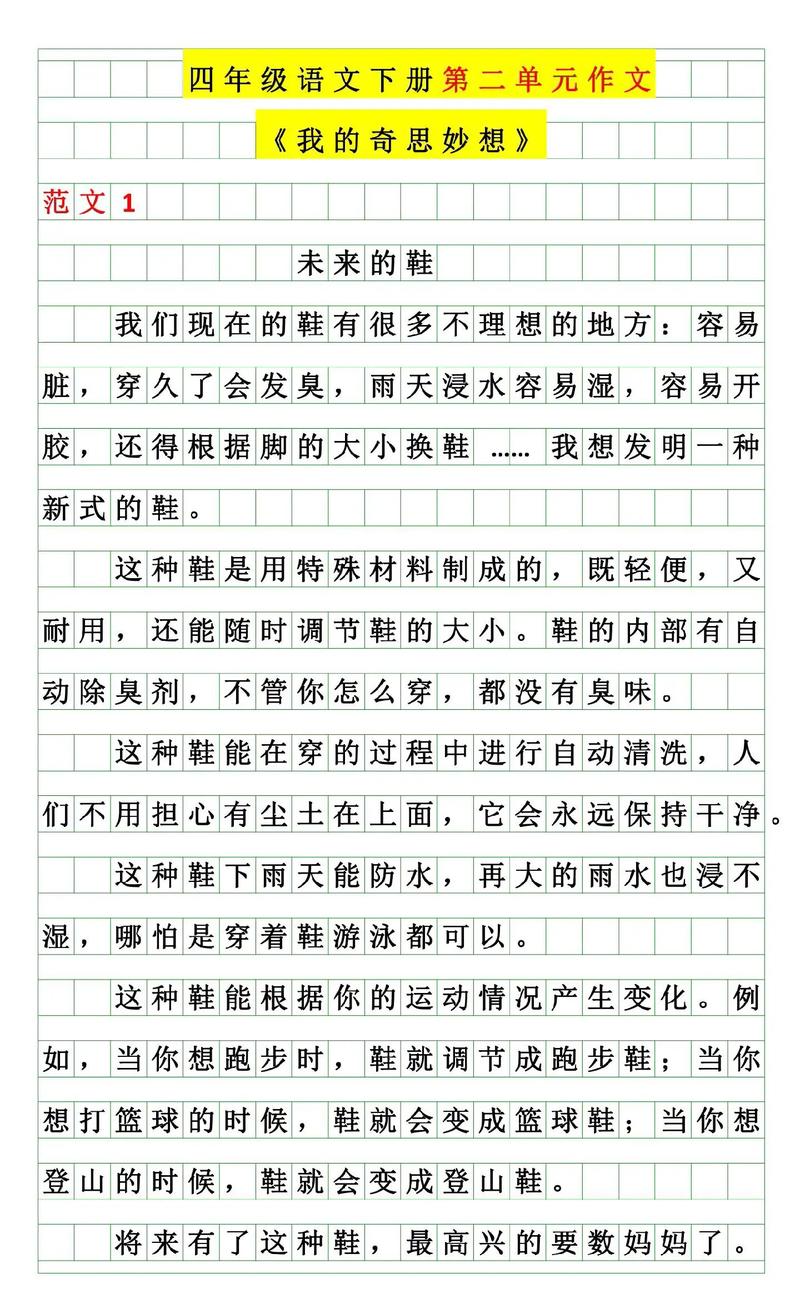 四年级语文下册第二单元作文
《我的奇思妙想》
范文1
未来的鞋
我们现在的鞋有很多不理想的地方：容易
脏，穿久了会发臭，雨天浸水容易湿，容易开
胶，还得根据脚的大小换鞋……我想发明一种
新式的鞋。
这种鞋是用特殊材料制成的，既轻便，又
耐用，还能随时调节鞋的大小。鞋的内部有自
动除臭剂，不管你怎么穿，都没有臭味。
这种鞋能在穿的过程中进行自动清洗，人
们不用担心有尘土在上面，它会永远保持干净。
这种鞋下雨天能防水，再大的雨水也浸不
湿，哪怕是穿着鞋游泳都可以。
这种鞋能根据你的运动情况产生变化。例
如，当你想跑步时，鞋就调节成跑步鞋；当你
想打篮球的时候，鞋就会变成篮球鞋；当你想
登山的时候，鞋就会变成登山鞋。
将来有了这种鞋，最高兴的要数妈妈了。